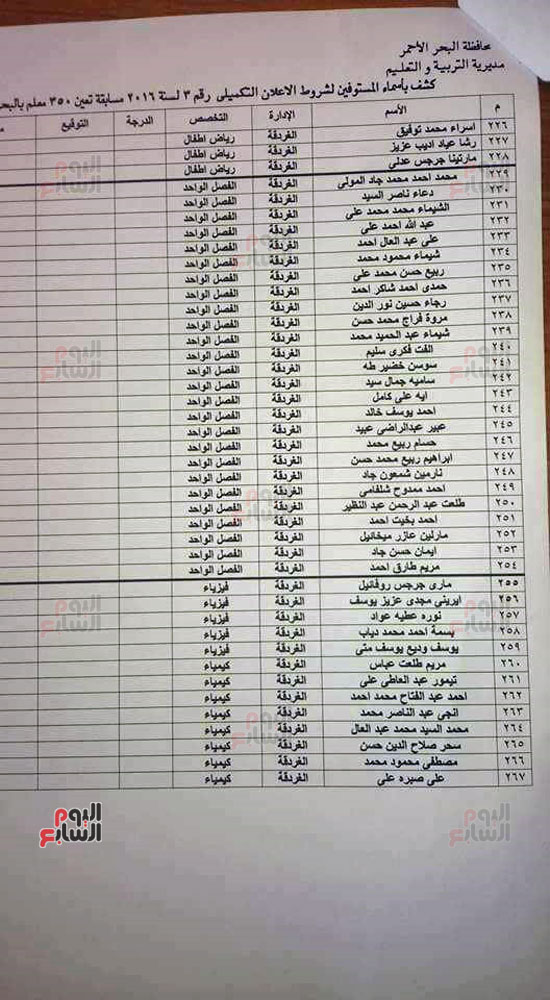 محافظة البحر الأحمر
مديرية التربية و التعليم
كشف بأسماء المستوفين لشروط الاعلان التكميلى رقم ٣ لسنة ٢٠١٦ مسابقة تعين ٣٥٠ معلم بالبحر
م الأسم الإدارة التخصص الدرجة التوقيع
٢٢٦ اسراء محمد توفيق الغردقة رياض اطفال
٢٢٧ رشا عياد اديب عزيز الغردقة رياض اطفال
٢٢٨ مارتينا جرجس عدلى الغردقة رياض اطفال
٢٢٩ محمد احمد محمد جاد المولى الغردقة الفصل الواحد
٢٣٠ دعاء ناصر السيد الغردقة الفصل الواحد
٢٣١ الشيماء محمد محمد على الغردقة الفصل الواحد
٢٣٢ عبد الله احمد على الغردقة الفصل الواحد
٢٣٣ على عبد العال احمد الغردقة الفصل الواحد
٢٣٤ شيماء محمود محمد الغردقة الفصل الواحد
٢٣٥ ربيع حسن محمد على الغردقة الفصل الواحد
٢٣٦ حمدى احمد شاكر احمد الغردقة الفصل الواحد
٢٣٧ رجاء حسين نور الدين الغردقة الفصل الواحد
٢٣٨ مروة فراج محمد حسن الغردقة الفصل الواحد
٢٣٩ شيماء عبد الحميد محمد الغردقة الفصل الواحد
٢٤٠ الفت فكرى سليم الغردقة الفصل الواحد
٢٤١ سوسن خضير طه الغردقة الفصل الواحد
٢٤٢ ساميه جمال سيد الغردقة الفصل الواحد
٢٤٣ ايه على كامل الغردقة الفصل الواحد
٢٤٤ احمد يوسف خالد الغردقة الفصل الواحد
٢٤٥ عبير عبدالراضى عبيد الغردقة الفصل الواحد
٢٤٦ حسام ربيع محمد الغردقة الفصل الواحد
٢٤٧ ابراهيم ربيع محمد حسن الغردقة الفصل الواحد
٢٤٨ نارمين شمعون جاد الغردقة الفصل الواحد
٢٤٩ احمد ممدوح شلقامى الغردقة الفصل الواحد
٢٥٠ طلعت عبد الرحمن عبد النظير الغردقة الفصل الواحد
٢٥١ احمد بخيت احمد الغردقة الفصل الواحد
٢٥٢ مارلين عازر ميخائيل الغردقة الفصل الواحد
٢٥٣ ايمان حسن جاد الغردقة الفصل الواحد
٢٥٤ مريم طارق احمد الغردقة الفصل الواحد
٢٥٥ مارى جرجس روفائيل الغردقة فيزياء
٢٥٦ ايرينى مجدى عزيز يوسف الغردقة فيزياء
٢٥٧ نوره عطيه عواد الغردقة فيزياء
٢٥٨ بسمة احمد محمد دياب الغردقة فيزياء
٢٥٩ يوسف وديع يوسف متى الغردقة فيزياء
٢٦٠ مريم طلعت عباس الغردقة كيمياء
٢٦١ تيمور عبد العاطى على الغردقة كيمياء
٢٦٢ احمد عبد الفتاح محمد احمد الغردقة كيمياء
٢٦٣ انجى عبد الناصر محمد الغردقة كيمياء
٢٦٤ محمد السيد محمد عبد العال الغردقة كيمياء
٢٦٥ سحر صلاح الدين حسن الغردقة كيمياء
٢٦٦ مصطفى محمود محمد الغردقة كيمياء
٢٦٧ على صبره على الغردقة كيمياء
اليوم السابع